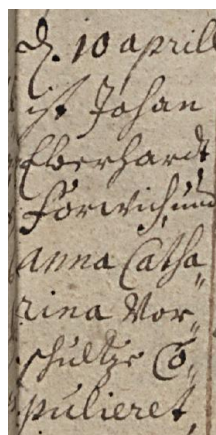 d. 10 aprill
ist Johan
Eberhardt
Förwich, und
Anna Catha„
rina Vor„
schultze Co„
pulieret,